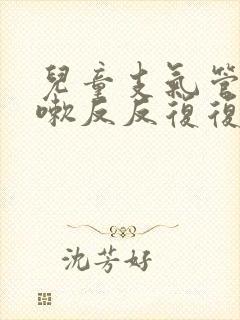 兒童支氣管
嗽反反復復
沈芳好